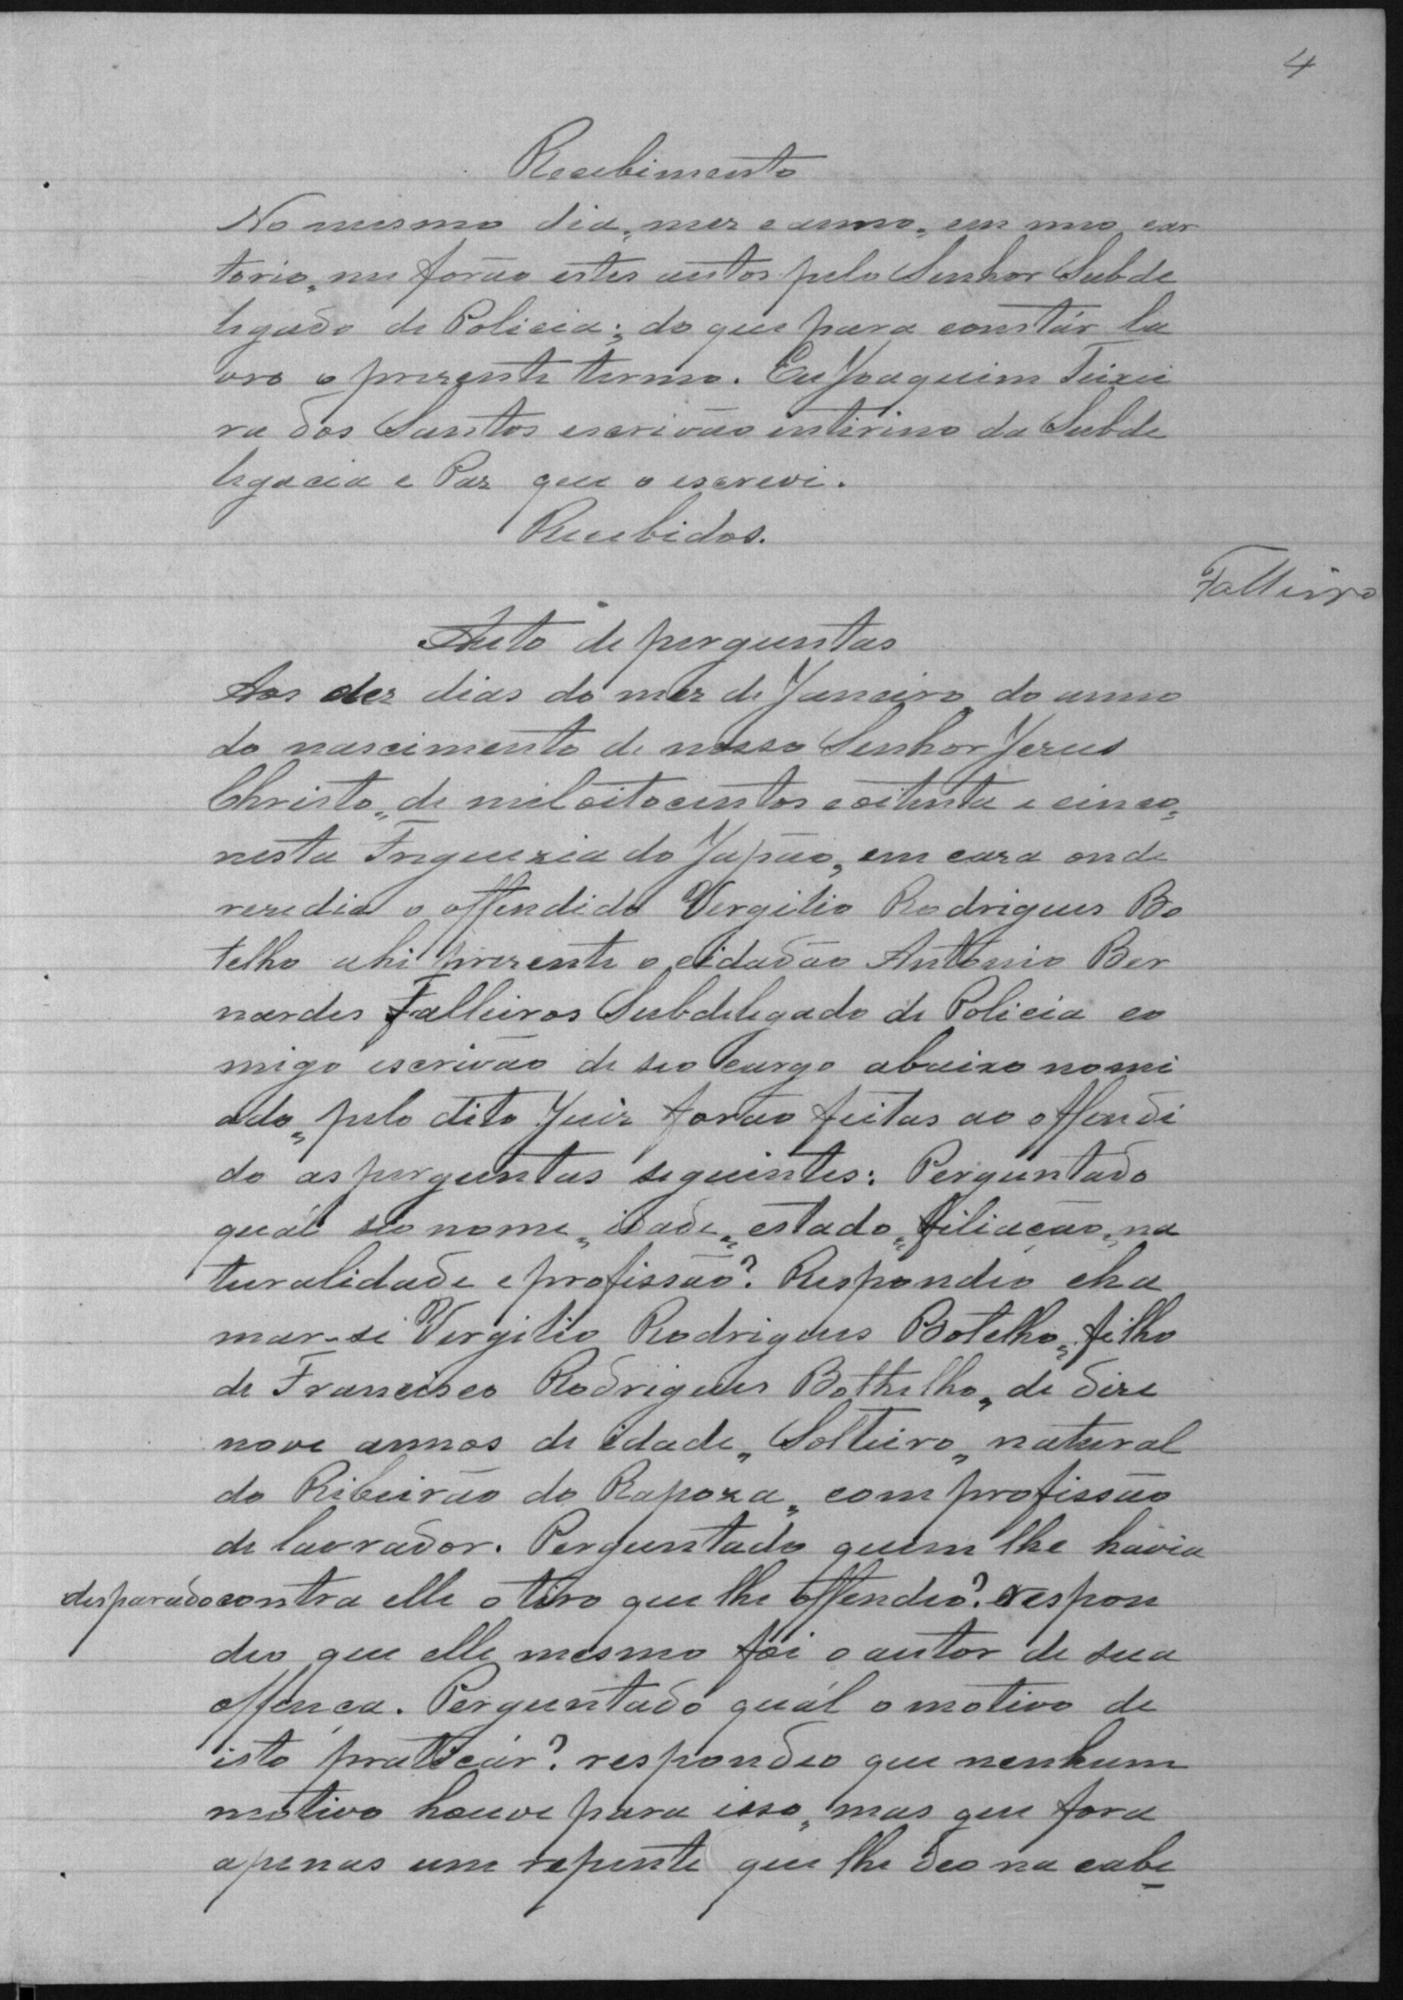 4
Recebimento
No mesmo dia, mez e anno, em meo car
torio, me forão estes autos pelo Senhor Subde
legado de Policia; do que para constár la
vro o prezente termo. Eu Joaquim Teixei
ra dos Santos escrivão interino da Subde
legacia e Paz que o escrevi.
Recebidos.
Falleiros
Auto de perguntas
Aos dez dias do mez de Janeiro do anno
do nascimento de nosso Senhor Jezus
Christo, de mil oitocentos e oitenta e cinco,
nesta Freguezia do Japão, em caza onde
rezedia o offendido Vergilio Rodrigues Bo
telho ahi prezente o cidadão Antonio Ber
nardes Falleiros Subdelegado de Policia co
migo escrivão de seo cargo abaixo nomi
ado, pelo dito Juiz forão feitas ao offendi
do as perguntas seguintes: Perguntado
quál seo nome, idade, estado, filiação, na
turalidade e profissão? Respondeo cha
mar-se Vergilio Rodrigues Botelho, filho
de Francisco Rodrigues Bothelho, de deze
nove annos de idade, Solteiro, natural
do Ribeirão do Rapoza, com profissão
de lavrador. Perguntado quem lhe havia
desparado contra elle o tiro que lhe offendeo? respon
deo que elle mesmo foi o autor de sua
offenca. Perguntado quál o motivo de
isto praticár? respondeo que nenhum
motivo houve para isso, mas que fora
apenas um repente que lhe deo na cabe